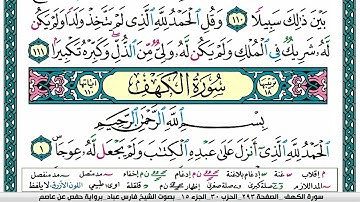 بَيْنَ ذَٰلِكَ سَبِيلًا ١١٠ وَقُلِ ٱلْحَمْدُ لِلَّهِ ٱلَّذِى لَمْ يَتَّخِذْ وَلَدًا وَلَمْ يَكُن
لَّهُۥ شَرِيكٌ فِى ٱلْمُلْكِ وَلَمْ يَكُن لَّهُۥ وَلِىٌّ مِّنَ ٱلذُّلِّ وَكَبِّرْهُ تَكْبِيرًۢا ١١١
سُورَةُ الْكَهْفِ
بِسْمِ ٱللَّهِ ٱلرَّحْمَٰنِ ٱلرَّحِيمِ
ٱلْحَمْدُ لِلَّهِ ٱلَّذِىٓ أَنزَلَ عَلَىٰ عَبْدِهِ ٱلْكِتَٰبَ وَلَمْ يَجْعَل لَّهُۥ عِوَجَا ١
سورة الكهف الصفحة ٢٩٣ الحزب ٣٠ الجزء ١٥ بصوت الشيخ فارس عباد برواية حفص عن عاصم